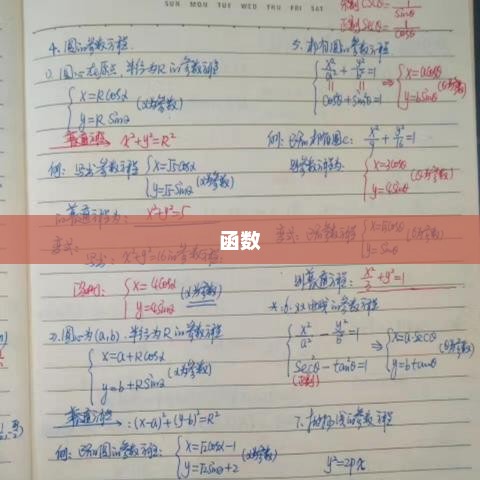 SUN MON TUE WED THU FRI SAT
余割 cscθ = 1/sinθ
正割 secθ = 1/cosθ
4. 圆的参数方程
①. 圆心在原点, 半径为R的参数方程
{ x=Rcosα
y=Rsinα (α为参数)
普通方程 x²+y²=R²
例: 写出参数方程 { x=√5cosα
y=√5sinα (α为参数)
的普通方程为: x²+y²=5
变式:
写出: x²+y²=16的参数方程
{ x=4cosα
y=4sinα (α为参数)
②. 圆心为(a,b), 半径为R的参数方程
{ x=a+Rcosα
y=b+Rsinα (α为参数)
普通方程: (x-a)²+(y-b)²=R²
例: 已知圆的参数方程: { x=√2cosα-1
y=√2sinα+2 (α为参数)
函数
5. 椭圆的参数方程
{ x²/a² + y²/b² =1
cos²θ+sin²θ=1
⇒ { x=acosθ
y=bsinθ (θ为参数)
例: 已知椭圆C: x²/9 + y²/16 =1
则参数方程为 { x=3cosθ
y=4sinθ (θ为参数)
变式: 已知参数方程 { x=√3cosθ
y=sinθ
则普通方程: x²/3 + y²=1
*.6. 双曲线的参数方程
{ x²/a² - y²/b² =1
sec²θ - tan²θ=1
(正割)
⇒ { x=a·secθ
y=btanθ (θ为参数)
7. 抛物线的参数方程
y²=2px